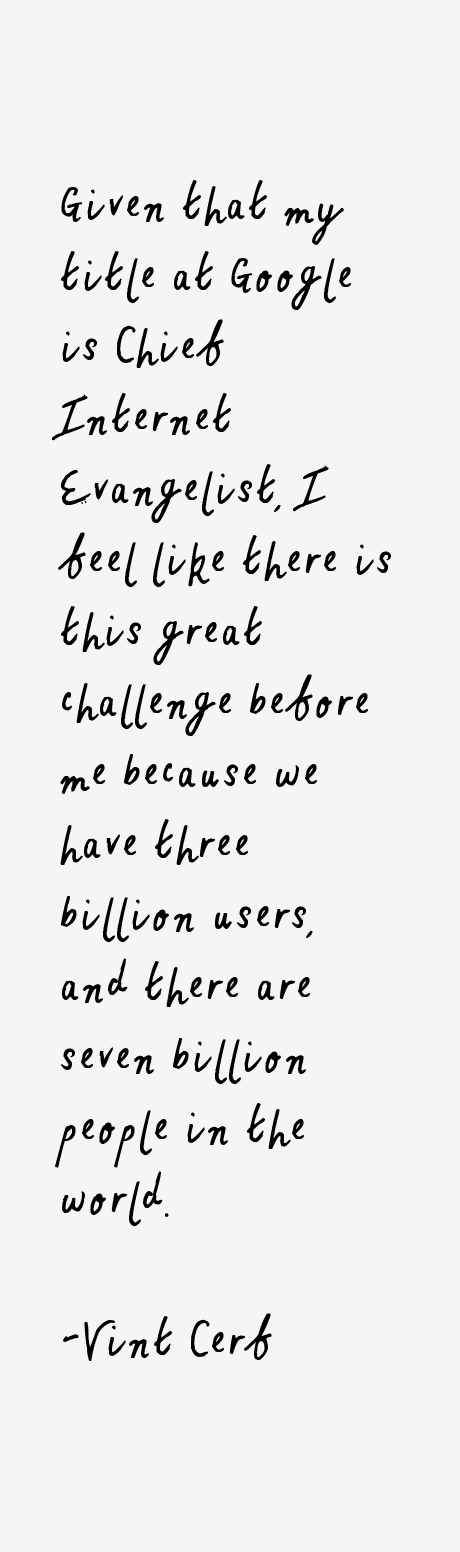 Given that my
title at Google
is Chief
Internet
Evangelist, I
feel like there is
this great
challenge before
me because we
have three
billion users,
and there are
seven billion
people in the
world.
-Vint Cerf